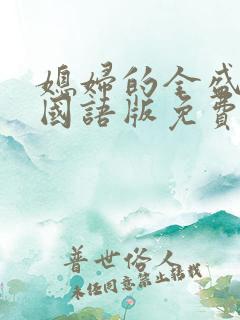 媳婦的全盛
國語版免費
普世俗人
未经同意禁止转载